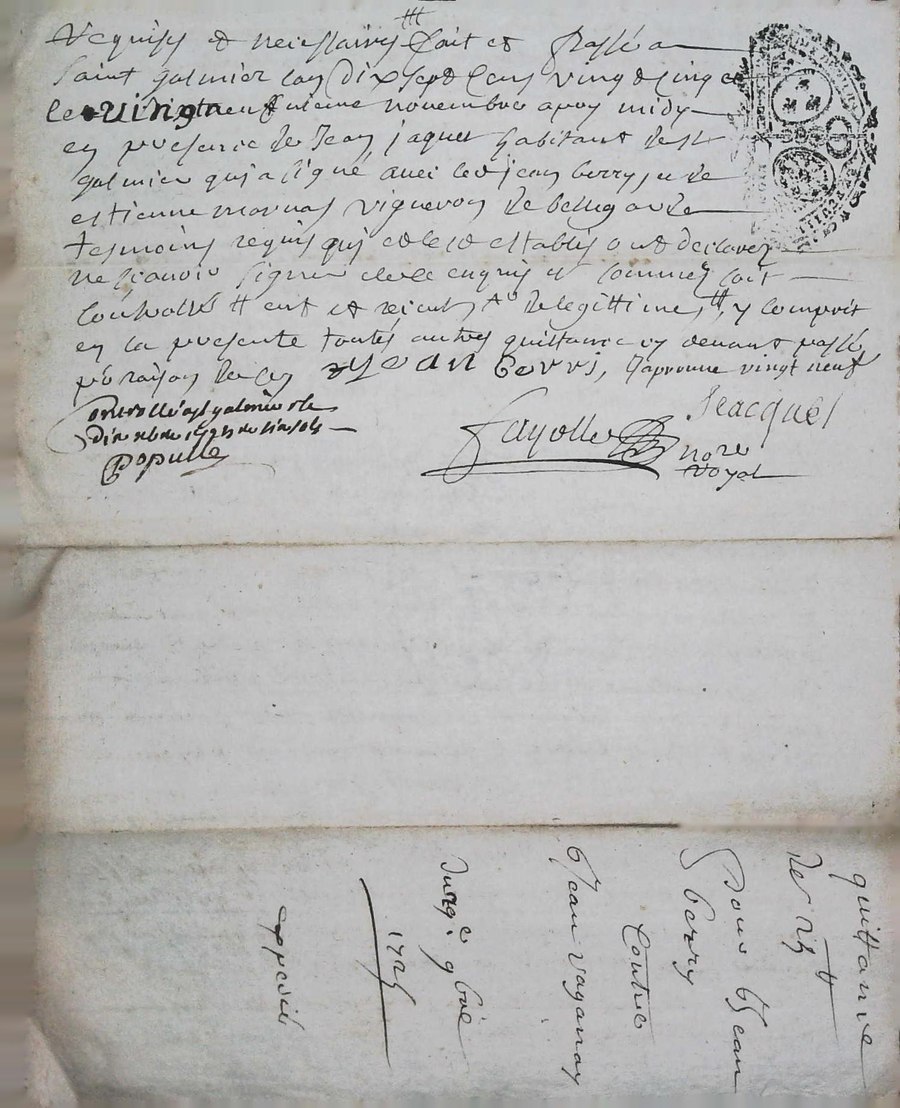 requises et necessaires fait et passé a
saint galmier l'an dix sept cens vingt cinq et
le vingt neufvieme novembre apres midy
en presence de Jean jaquet habitant de st
galmier qui a signé avec led jean berry, et de
estienne mornas vigneron de bellegarde
tesmoins requis qui et led establis ont declarez
ne scavoir signer de ce enquis et sommez soit
controllé et de legittime, y comprit
en la presente toutes autres quittance cy devant passé
pr raison de ce Jean berri, J approuve vingt neuf
Jeacques
controllé a st galmier le
dix xbre 1725
Fayolle
Populle
nore
royal
quittance
de 25 ff
pour Jean
berry
Contre
Jean vaganay
du 29e 9bre
1725
expedié